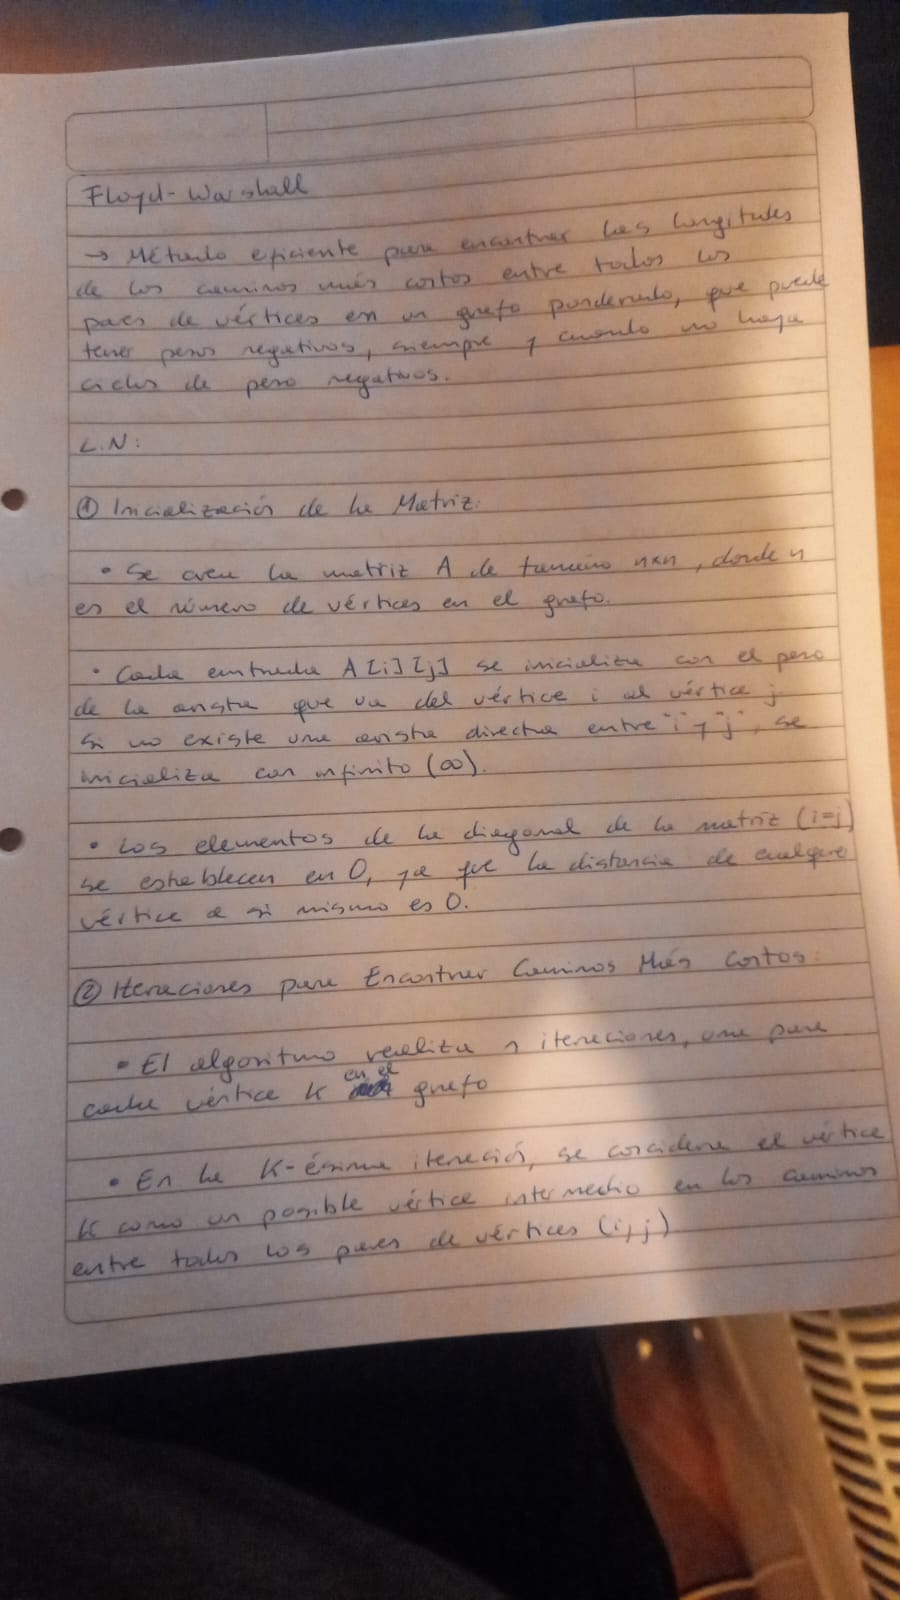 Floyd-Warshall
→ Método eficiente para encontrar las longitudes
de los caminos más cortos entre todos los
pares de vértices en un grafo ponderado, que puede
tener pesos negativos, siempre y cuando no haya
ciclos de peso negativos.
L.N:
① Incialización de la Matriz:
• Se crea la matriz A de tamaño nxn, donde n
es el número de vértices en el grafo.
• Cada entrada A[i][j] se inicializa con el peso
de la arista que va del vértice i al vértice j.
Si no existe una arista directa entre "i" y "j", se
inicializa con infinito (∞).
• Los elementos de la diagonal de la matriz (i=j)
se establecen en 0, ya que la distancia de cualquier
vértice a si mismo es 0.
② Iteraciones para Encontrar Caminos Más Cortos:
• El algoritmo realiza n iteraciones, una para
cada vértice K en el grafo
• En la K-ésima iteración, se considera el vértice
K como un posible vértice intermedio en los caminos
entre todos los pares de vértices (i,j)